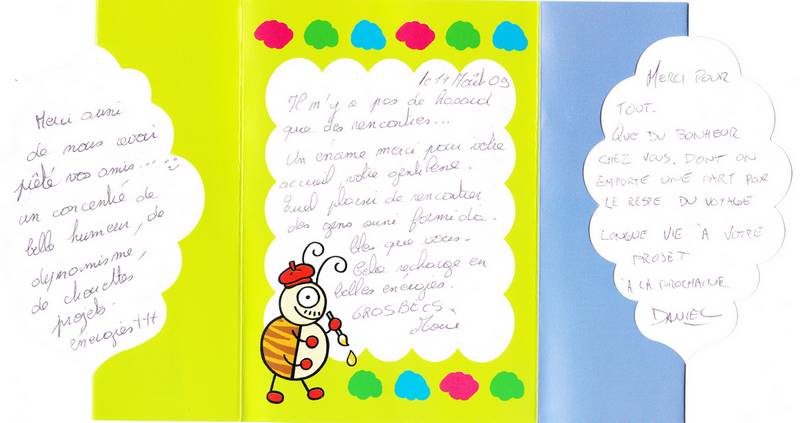 Merci aussi
de nous avoir
prêté vos amis...
un concentré de
belle humeur, de
dynamisme,
de chouettes
projets.
énergies+++
le 11 Août 09
Il n'y a pas de hasard
que des rencontres...
Un énorme merci pour votre
accueil, votre gentillesse.
Quel plaisir de rencontrer
des gens aussi formida-
bles que vous.
Cela recharge en
belles énergies.
GROSBECS
MERCI POUR
TOUT.
QUE DU BONHEUR
CHEZ VOUS, DONT ON
EMPORTE UNE PART POUR
LE RESTE DU VOYAGE
LONGUE VIE À VOTRE
PROJET
À LA PROCHAINE
DANIEL